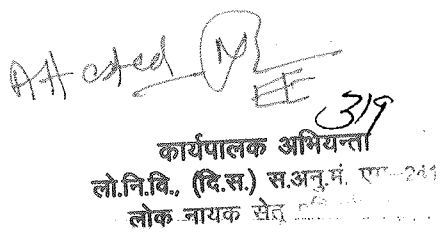 Attested
EE
319
कार्यपालक अभियन्ता
लो.नि.वि., (दि.स.) स.अनु.मं. एम-241
लोक नायक सेतु